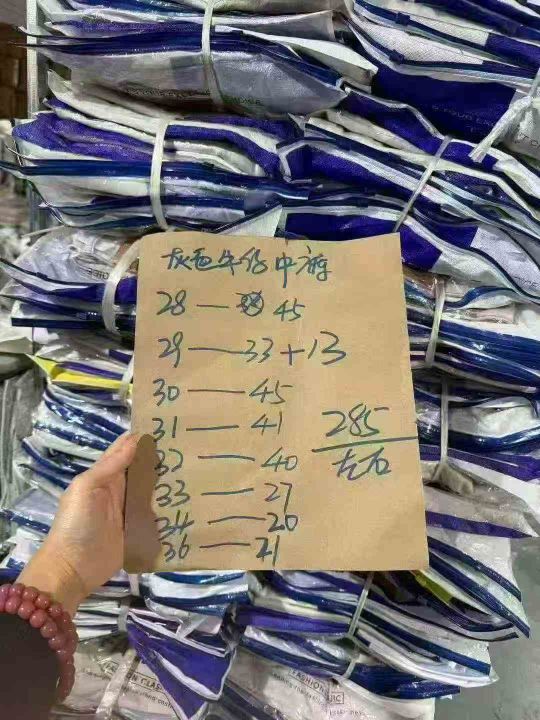 灰色牛仔中裤
28 — 45
29 — 33+13
30 — 45
31 — 41
32 — 40
33 — 27
34 — 20
36 — 21
285
左右
FASHION CLAS